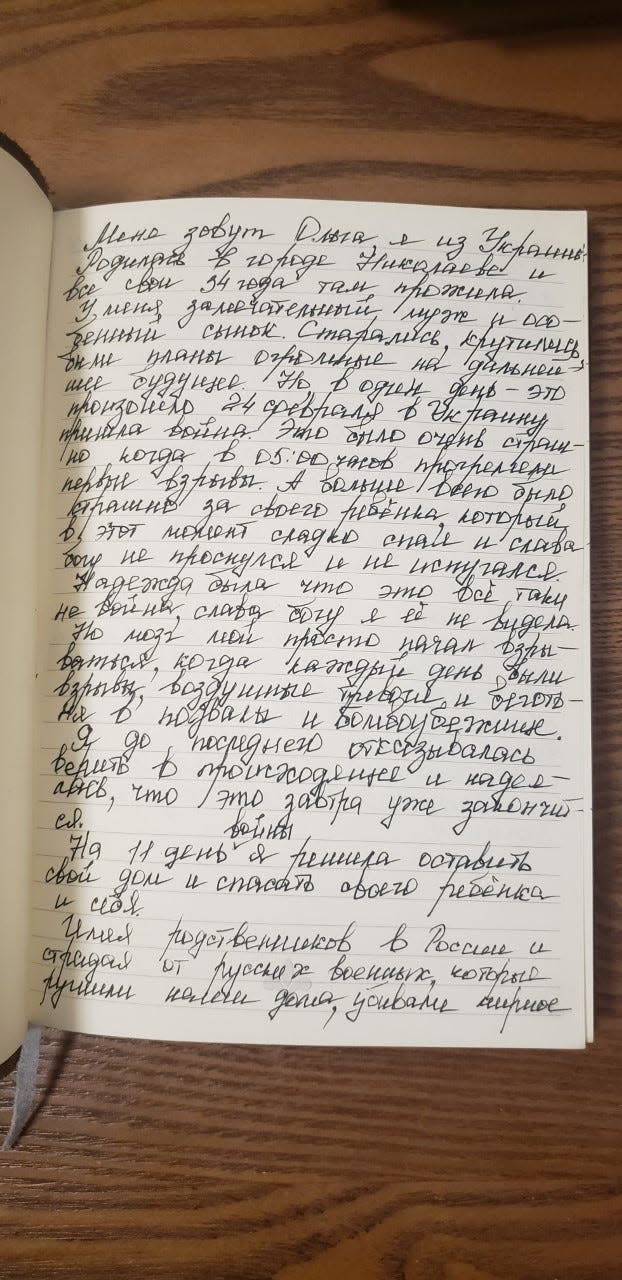 Меня зовут Ольга, я из Украины.
Родилась в городе Николаеве и
все свои 34 года там прожила.
У меня замечательный муж и осо-
бенный сынок. Старались, крутились,
были планы огромные на дальней-
шее будущее. Но в один день – это
произошло 24 февраля в Украину
пришла война. Это было очень страш-
но когда в 05:00 часов прогремели
первые взрывы. А больше всего было
страшно за своего ребёнка, который
в этот момент сладко спал и слава
богу не проснулся и не испугался.
Надежда была что это всё таки
не война, слава богу я её не видела.
Но мозг мой просто начал взры-
ваться, когда каждый день были
взрывы, воздушные тревоги и беготь-
ня в подвалы и бомбоубежище.
Я до последнего отказывалась
верить в происходящее и надея-
лась, что это завтра уже закончит-
ся.
войны
На 11 день я решила оставить
свой дом и спасать своего ребёнка
и себя.
Имея родственников в России и
страдая от русских военных, которые
рушили наши дома, убивали мирное